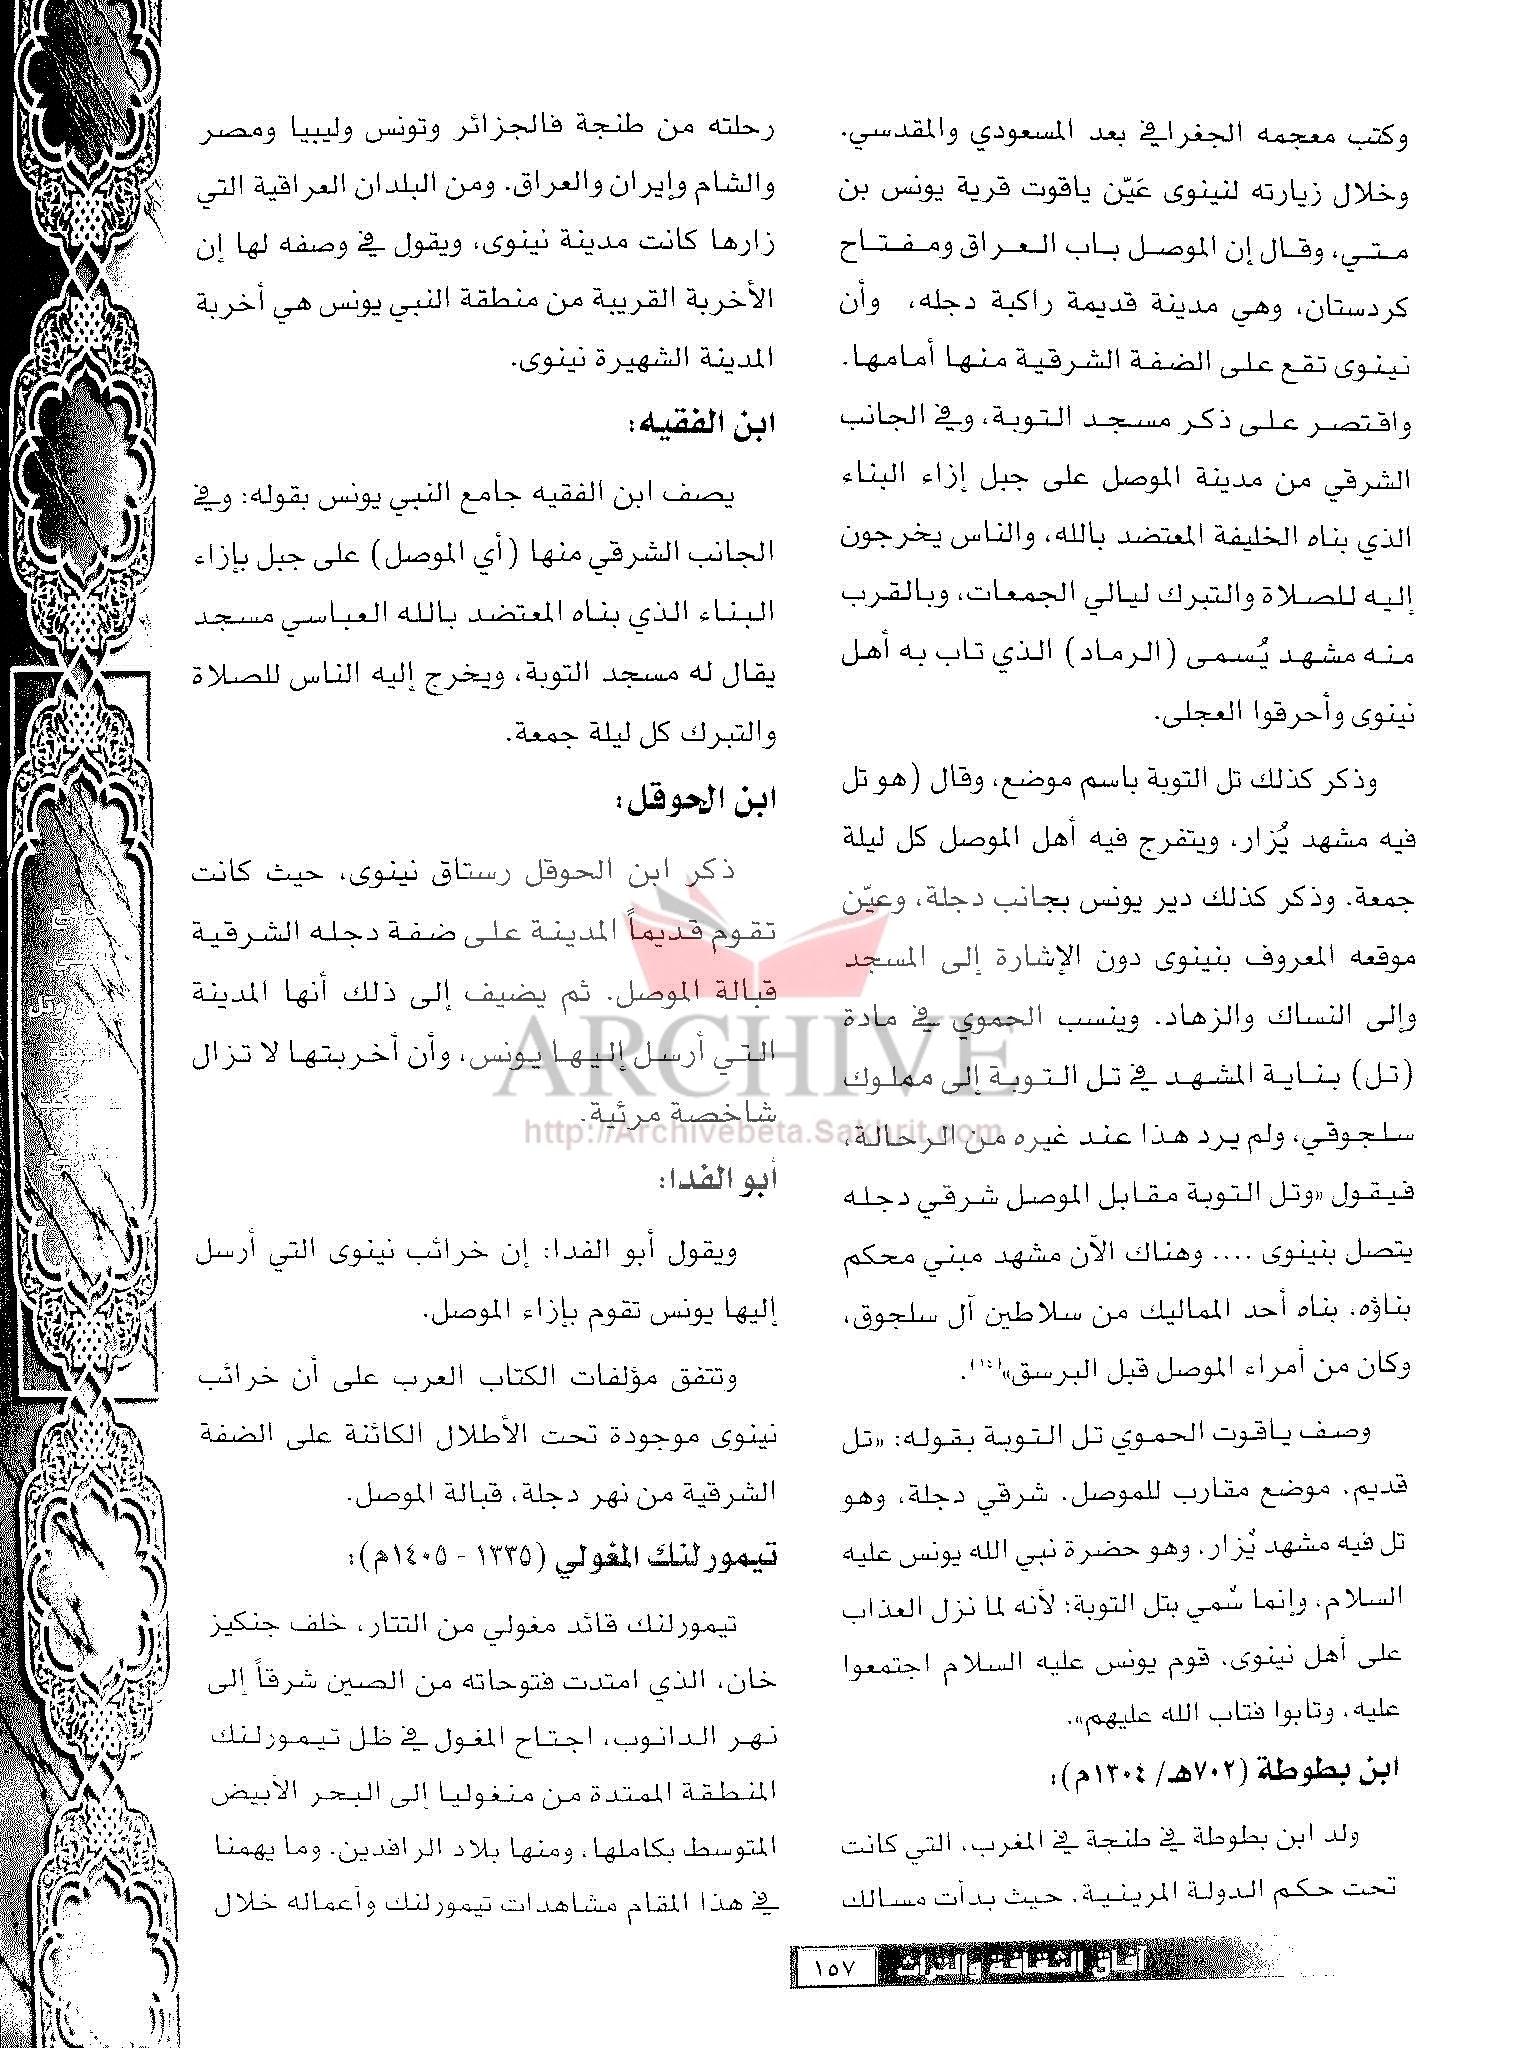 وكتب معجمه الجغرافي بعد المسعودي والمقدسي.
وخلال زيارته لنينوى عَيّن ياقوت قرية يونس بن
متي، وقال إن الموصل باب العراق ومفتاح
كردستان، وهي مدينة قديمة راكبة دجله، وأن
نينوى تقع على الضفة الشرقية منها أمامها.
واقتصر على ذكر مسجد التوبة، وفي الجانب
الشرقي من مدينة الموصل على جبل إزاء البناء
الذي بناه الخليفة المعتضد بالله، والناس يخرجون
إليه للصلاة والتبرك ليالي الجمعات، وبالقرب
منه مشهد يُسمى (الرماد) الذي تاب به أهل
نينوى وأحرقوا العجلى.
وذكر كذلك تل التوبة باسم موضع، وقال (هو تل
فيه مشهد يُزار، ويتفرج فيه أهل الموصل كل ليلة
جمعة. وذكر كذلك دير يونس بجانب دجلة، وعيّن
موقعه المعروف بنينوى دون الإشارة إلى المسجد
وإلى النساك والزهاد. وينسب الحموي في مادة
(تل) بناية المشهد في تل التوبة إلى مملوك
سلجوقي، ولم يرد هذا عند غيره من الرحالة،
فيقول «وتل التوبة مقابل الموصل شرقي دجله
يتصل بنينوى .... وهناك الآن مشهد مبني محكم
بناؤه. بناه أحد المماليك من سلاطين آل سلجوق،
وكان من أمراء الموصل قبل البرسق»(١٤).
وصف ياقوت الحموي تل التوبة بقوله: «تل
قديم. موضع مقارب للموصل. شرقي دجلة، وهو
تل فيه مشهد يُزار. وهو حضرة نبي الله يونس عليه
السلام. وإنما سُمي بتل التوبة؛ لأنه لما نزل العذاب
على أهل نينوى. قوم يونس عليه السلام اجتمعوا
عليه. وتابوا فتاب الله عليهم».
ابن بطوطة (٧٠٢هـ/ ١٣٠٤م):
ولد ابن بطوطة في طنجة في المغرب، التي كانت
تحت حكم الدولة المرينية. حيث بدأت مسالك
رحلته من طنجة فالجزائر وتونس وليبيا ومصر
والشام وإيران والعراق. ومن البلدان العراقية التي
زارها كانت مدينة نينوى، ويقول في وصفه لها إن
الأخربة القريبة من منطقة النبي يونس هي أخربة
المدينة الشهيرة نينوى.
ابن الفقيه:
يصف ابن الفقيه جامع النبي يونس بقوله: وفي
الجانب الشرقي منها (أي الموصل) على جبل بإزاء
البناء الذي بناه المعتضد بالله العباسي مسجد
يقال له مسجد التوبة، ويخرج إليه الناس للصلاة
والتبرك كل ليلة جمعة.
ابن الحوقل:
ذكر ابن الحوقل رستاق نينوى، حيث كانت
تقوم قديماً المدينة على ضفة دجله الشرقية
قبالة الموصل. ثم يضيف إلى ذلك أنها المدينة
التي أرسل إليها يونس، وأن أخربتها لا تزال
شاخصة مرئية.
أبو الفدا:
ويقول أبو الفدا: إن خرائب نينوى التي أرسل
إليها يونس تقوم بإزاء الموصل.
وتتفق مؤلفات الكتاب العرب على أن خرائب
نينوى موجودة تحت الأطلال الكائنة على الضفة
الشرقية من نهر دجلة، قبالة الموصل.
تيمورلنك المغولي (١٣٣٥ - ١٤٠٥م):
تيمورلنك قائد مغولي من التتار، خلف جنكيز
خان، الذي امتدت فتوحاته من الصين شرقاً إلى
نهر الدانوب، اجتاح المغول في ظل تيمورلنك
المنطقة الممتدة من منغوليا إلى البحر الأبيض
المتوسط بكاملها، ومنها بلاد الرافدين. وما يهمنا
في هذا المقام مشاهدات تيمورلنك وأعماله خلال
ARCHIVE
http://Archivebeta.Sakhrit.com
آفاق الثقافة والتراث
١٥٧